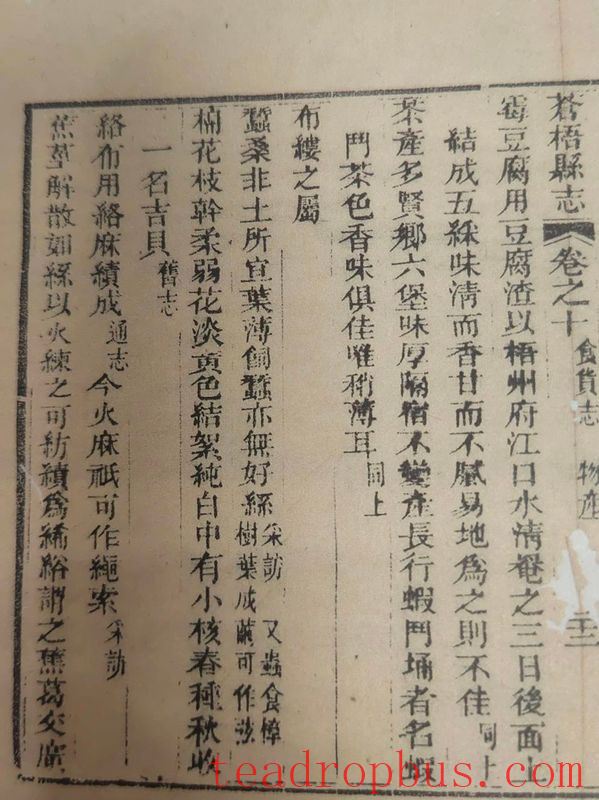 蒼梧縣志 卷之十 食貨志 物產 二十三
霉豆腐用豆腐渣以梧州府江口水清罨之三日後面上
結成五綵味清而香甘而不膩易地為之則不佳同上
茶產多賢鄉六堡味厚隔宿不變產長行蝦鬥埇者名蝦
鬥茶色香味俱佳唯稍薄耳同上
布縷之屬
蠶桑非土所宜葉薄飼蠶亦無好絲采訪 又蟲食樟樹葉成繭可作弦
棉花枝幹柔弱花淡黃色結絮純白中有小核春種秋收
一名吉貝舊志
絡布用絡麻績成通志今火麻祇可作繩索采訪
蕉莖解散如絲以火練之可紡績為絺綌謂之蕉葛交廣
teadrophus.com